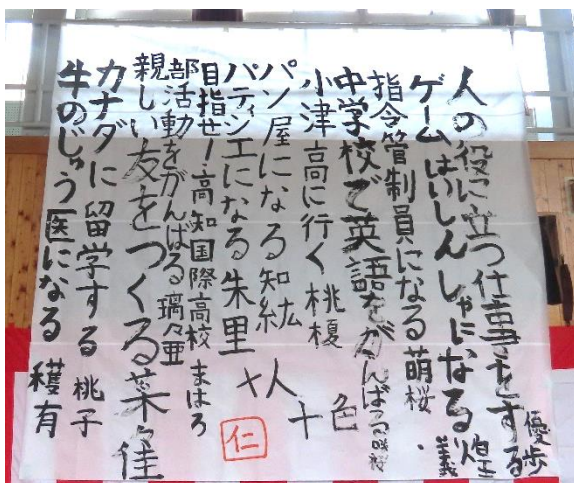 人の役に立つ仕事をする 優歩
ゲームはいしんしゃになる 煌義
指令管制員になる 萌桜
中学校で英語をがんばる 咲桜
小津高に行く 桃榎
パン屋になる 知紘
パティシエになる 朱里
目指せ!高知国際高校 まほろ
部活動をがんばる 璃々亜
親しい友をつくる 菜々佳
カナダに留学する 桃子
牛のじゅう医になる 穫有
十人十色
仁